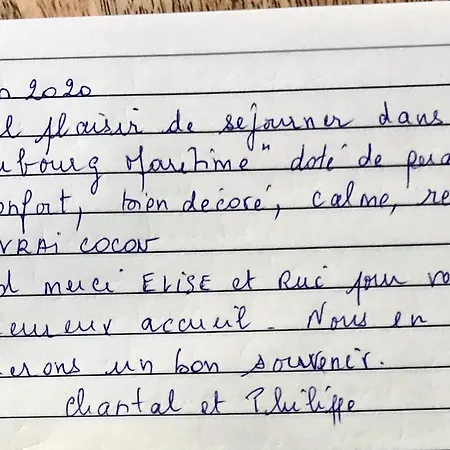 2020
plaisir de séjourner dans
bourg Maritime" doté de
confort, bien décoré, calme,
VRAI COCON
merci ELISE et Rui pour
accueil. Nous en
erons un bon souvenir.
Chantal et Philippe